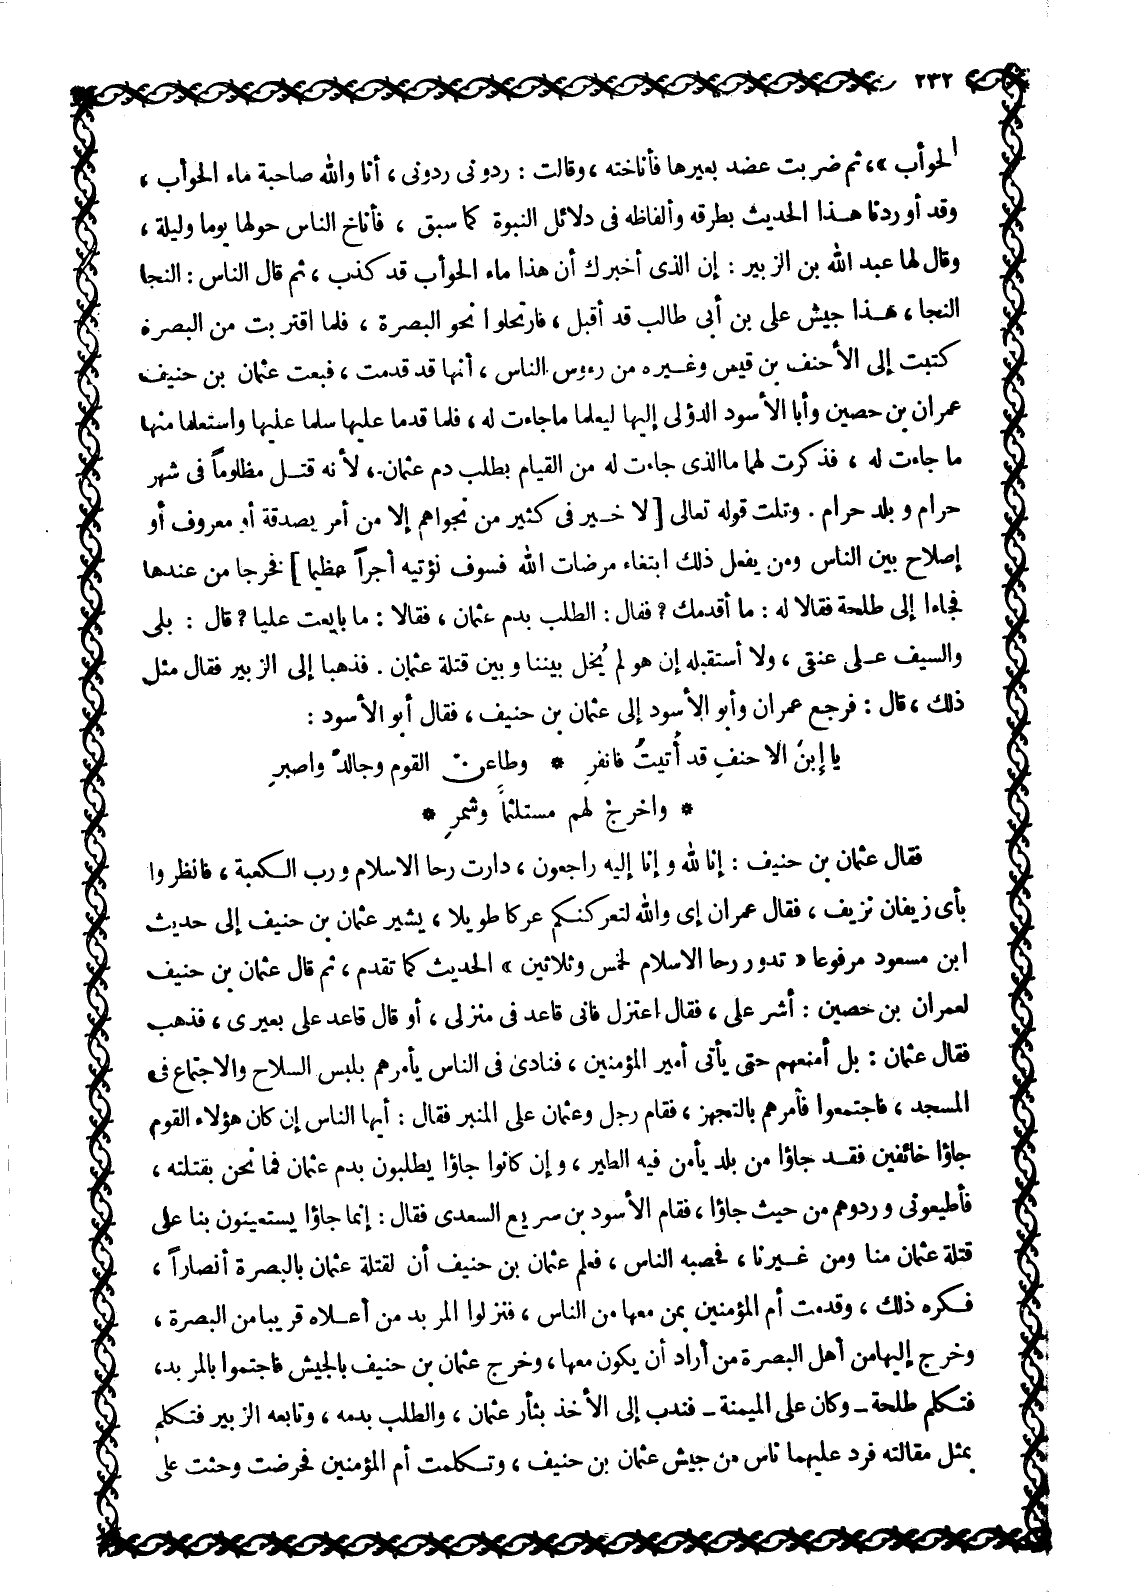 ٢٣٢
الحوأب »، ثم ضربت عضد بعيرها فأناخته ، وقالت : ردونى ردونى ، أنا والله صاحبة ماء الحوأب ،
وقد أوردنا هذا الحديث بطرقه وألفاظه فى دلائل النبوة كما سبق ، فأناخ الناس حولها يوما وليلة ،
وقال لها عبد الله بن الزبير : إن الذى أخبرك أن هذا ماء الحوأب قد كذب ، ثم قال الناس : النجا
النجا ، هذا جيش على بن أبى طالب قد أقبل ، فارتحلوا نحو البصرة ، فلما اقتربت من البصرة
كتبت إلى الأحنف بن قيس وغيره من رءوس الناس ، أنها قد قدمت ، فبعث عثمان بن حنيف
عمران بن حصين وأبا الأسود الدؤلى إليها ليعلما ماجاءت له ، فلما قدما عليها سلما عليها واستعلما منها
ما جاءت له ، فذكرت لهما ماالذى جاءت له من القيام بطلب دم عثمان ، لأنه قتل مظلوماً فى شهر
حرام وبلد حرام . وتلت قوله تعالى [ لا خير فى كثير من نجواهم إلا من أمر بصدقة أو معروف أو
إصلاح بين الناس ومن يفعل ذلك ابتغاء مرضات الله فسوف نؤتيه أجراً عظيما ] فخرجا من عندها
فجاءا إلى طلحة فقالا له : ما أقدمك ؟ فقال : الطلب بدم عثمان ، فقالا : ما بايعت عليا ؟ قال : بلى
والسيف على عنقى ، ولا أستقبله إن هو لم يُخل بيننا وبين قتلة عثمان . فذهبا إلى الزبير فقال مثل
ذلك ، قال : فرجع عمران وأبو الأسود إلى عثمان بن حنيف ، فقال أبو الأسود :
يا إبنُ الاحنفِ قد أُتيتُ فانفرِ * وطاعن القوم وجالدْ واصبرِ
* واخرجْ لهم مستلئماً وشمرِ *
فقال عثمان بن حنيف : إنا لله و إنا إليه راجعون ، دارت رحا الاسلام ورب الكعبة ، فانظروا
بأى زيفان نزيف ، فقال عمران إى والله لتعركنكم عركا طويلا ، يشير عثمان بن حنيف إلى حديث
ابن مسعود مرفوعا « تدور رحا الاسلام لخمس وثلاثين » الحديث كما تقدم ، ثم قال عثمان بن حنيف
لعمران بن حصين : أشر على ، فقال اعتزل فانى قاعد فى منزلى ، أو قال قاعد على بعيرى ، فذهب
فقال عثمان : بل أمنعهم حتى يأتى أمير المؤمنين ، فنادى فى الناس يأمرهم بلبس السلاح والاجتماع فى
المسجد ، فاجتمعوا فأمرهم بالتجهز ، فقام رجل وعثمان على المنبر فقال : أيها الناس إن كان هؤلاء القوم
جاؤا خائفين فقد جاؤا من بلد يأمن فيه الطير ، وإن كانوا جاؤا يطلبون بدم عثمان فما نحن بقتلته ،
فأطيعونى وردوهم من حيث جاؤا ، فقام الأسود بن سريع السعدى فقال : إنما جاؤا يستعينون بنا على
قتلة عثمان منا ومن غيرنا ، فحصبه الناس ، فعلم عثمان بن حنيف أن لقتلة عثمان بالبصرة أنصاراً ،
فكره ذلك ، وقدمت أم المؤمنين بمن معها من الناس ، فنزلوا المربد من أعلاه قريبا من البصرة ،
وخرج إليها من أهل البصرة من أراد أن يكون معها ، وخرج عثمان بن حنيف بالجيش فاجتمعوا بالمربد ،
فتكلم طلحة ــ وكان على الميمنة ــ فندب إلى الأخذ بثأر عثمان ، والطلب بدمه ، وتابعه الزبير فتكلم
بمثل مقالته فرد عليهما ناس من جيش عثمان بن حنيف ، وتكلمت أم المؤمنين فحرضت وحثت على